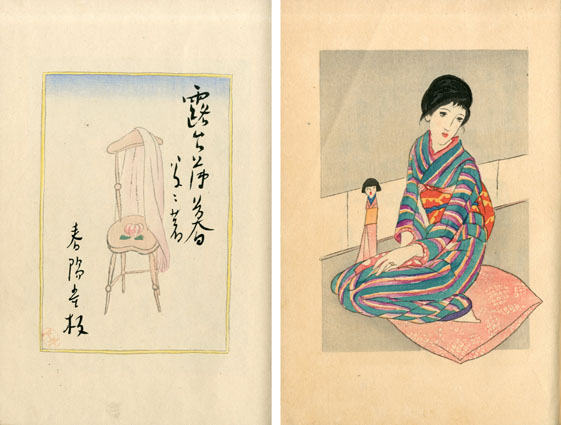 露台薄暮
夢二著
春陽堂板